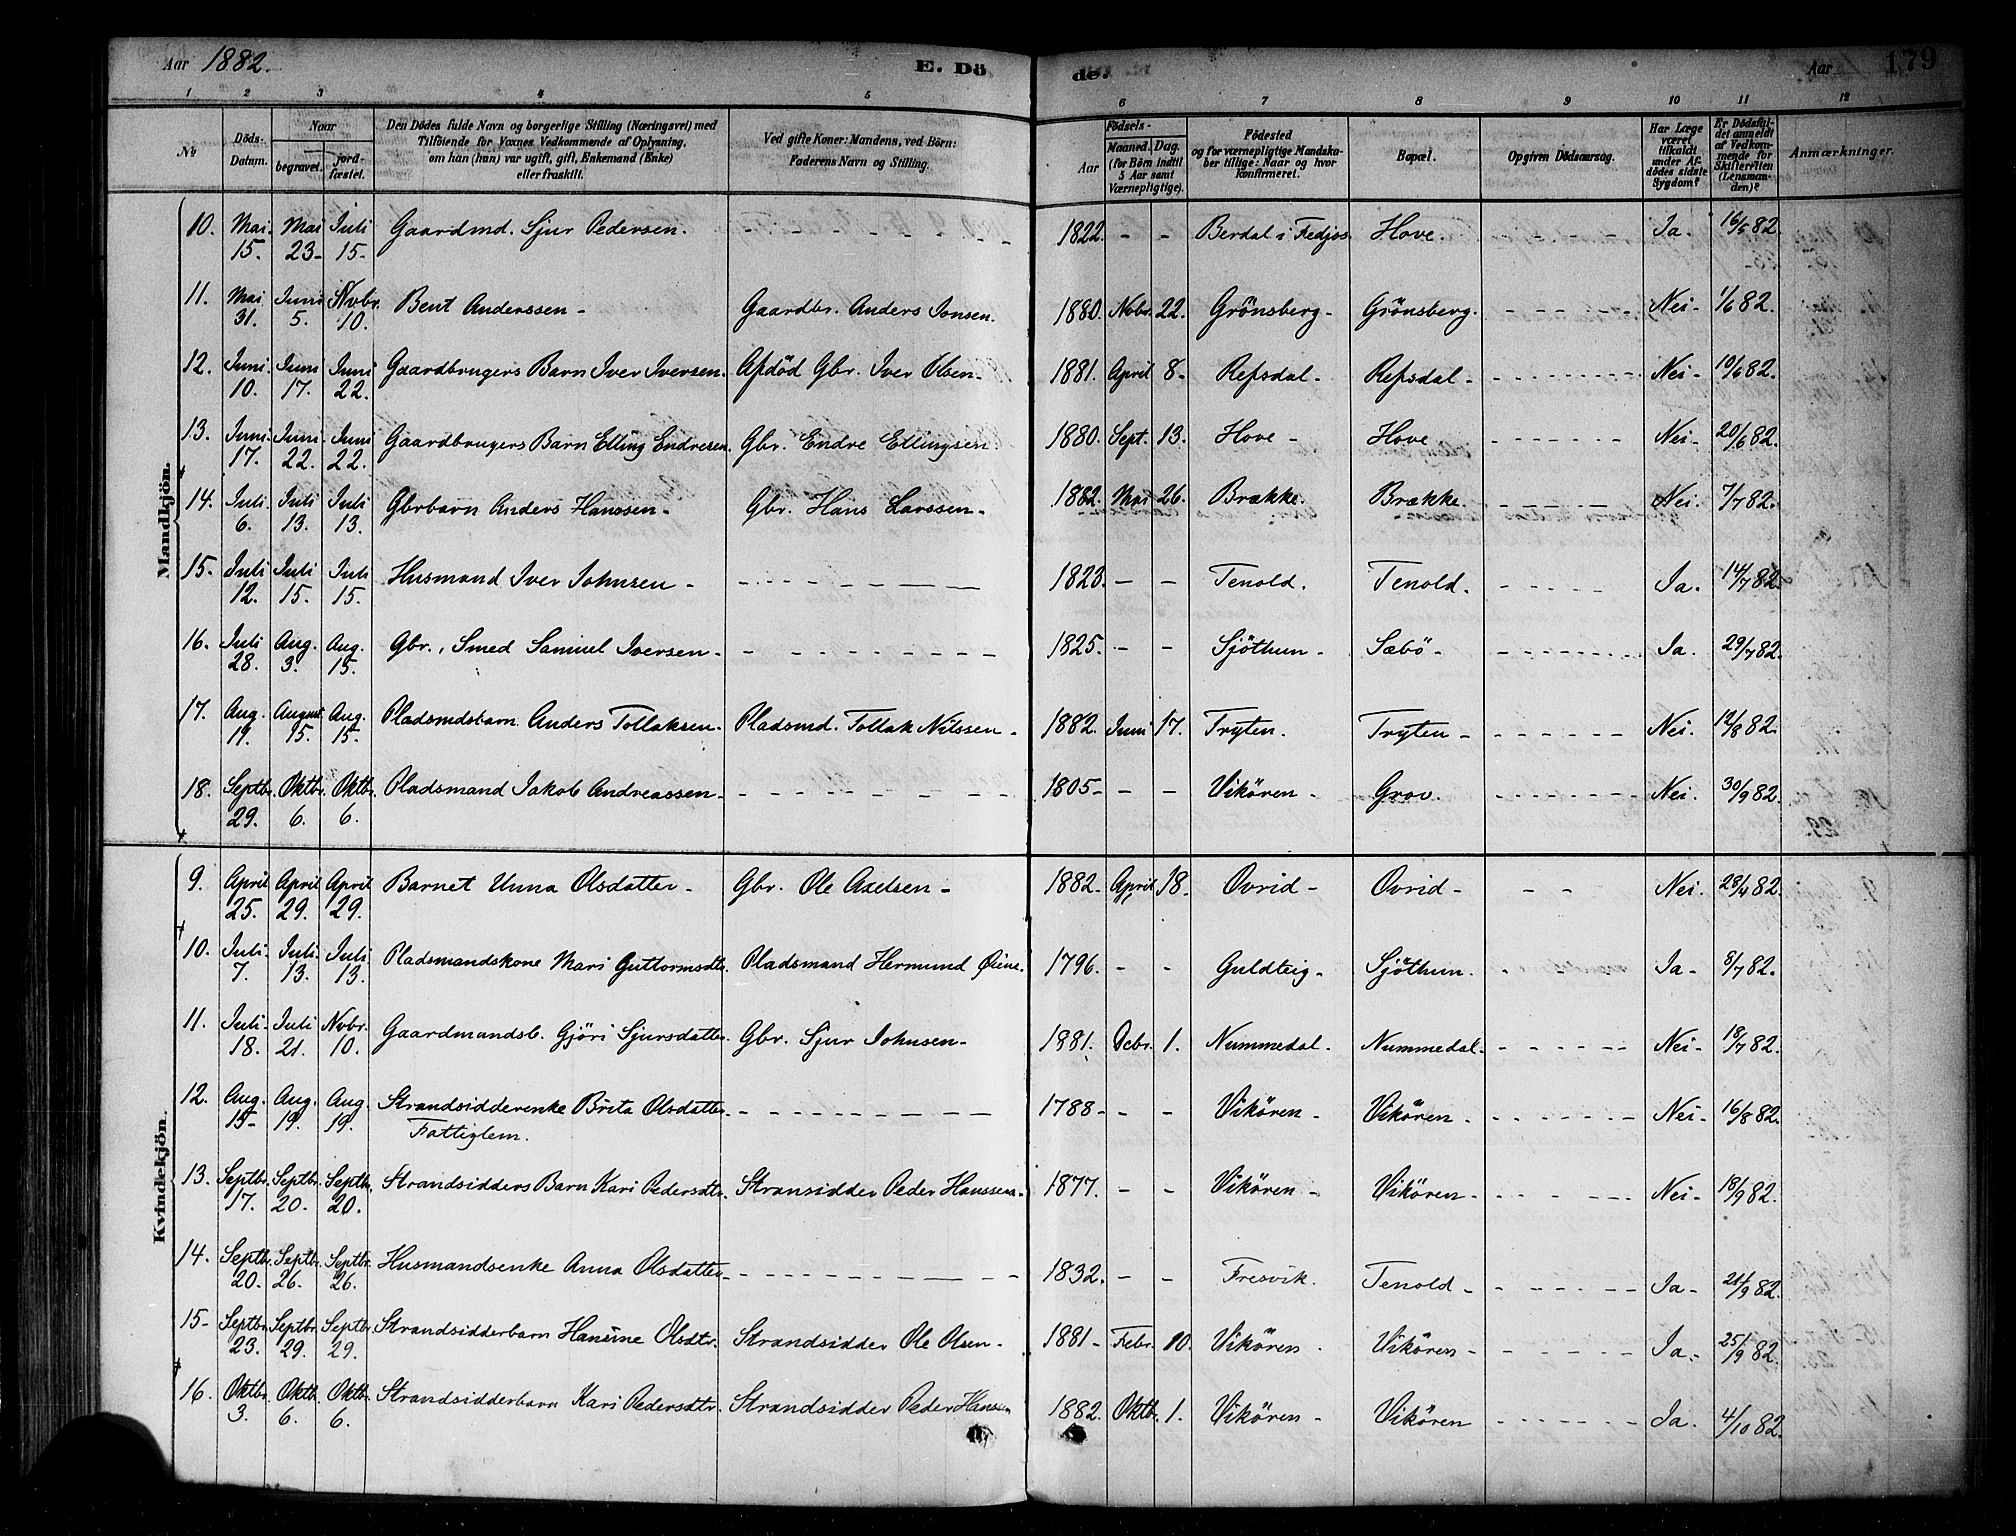 Aar 1882. E. Dö de. Aar 179
1 2 3 4 5 6 7 8 9 10 11 12
No Döds-Datum. Naar begravet. jord-fæstet. Den Dödes fulde Navn og borgerlige Stilling (Næringsvei) med Tilföiende for Voxnes Vedkommende af Oplysning, om han (hun) var ugift, gift, Enkemand (Enke) eller fraskilt. Ved gifte Koner: Mandens, ved Börn: Faderens Navn og Stilling. Födsels- Aar Maaned. Dag. (for Börn indtil 5 Aar samt Værnepligtige). Födested og for værnepligtige Mandskaber tillige: Naar og hvor Konfirmeret. Bopæl. Opgiven Dödsaarsag. Har Læge været tilkaldt under Afdödes sidste Sygdom? Er Dödsfaldet anmeldt af Vedkommende for Skifteretten (Lensmanden)? Anmærkninger.
Mandkjön.
10. Mai 15. Mai 23- Juli 15- Gaardmd. Sjur Pedersen. 1822. - - Berdal i Fedjos Hove. Ja. 16/5 82.
11. Mai 31. Juni 5. Novbr. 10. Bent Anderssen - Gaardbr. Anders Jonsen. 1880. Novbr. 22. Grönsberg - Grönsberg. Nei - 1/6 82.
12. Juni 10. Juni 17. Juni 22. Gaardbrugers Barn Iver Iversen. Afdöd Gbr. Iver Olsen - 1881. April 8 - Refsdal - Refsdal - Nei - 10/6 82.
13. Juni 17. Juni 22. Juni 22. Gaardbrugers Barn Elling Endresen Gbr. Endre Ellingsen 1880. Sept. 13. Hove - Hove Nei - 20/6 82.
14. Juli 6. Juli 13. Juli 13. Gbrbarn Anders Hanssen - Gbr. Hans Larssen - 1882. Mai 26. Brække. Brække. Nei. 7/7 82.
15. Juli 12. Juli 15. Juli 15. Husmand Iver Johnsen - 1823. - - Tenold. Tenold. Ja. 14/7 82.
16. Juli 28. Aug. 3. Aug. 15. Gbr., Smed Samuel Iversen - 1825. - - Sjöthun - Sæbö - Ja. 29/7 82.
17. Aug. 19. August 15. Aug. 15. Pladsmdsbarn Anders Tollaksen - Pladsmd. Tollak Nilssen - 1882. Juni 17. Tryten. Tryten - Nei. 12/8 82.
18. Septbr. 29. Oktbr. 6. Oktbr. 6. Pladsmand Jakob Andreassen - 1805 - - Vikören - Grov. Nei. 30/9 82.
Kvindekjön.
9. April 25. April 29. April 29. Barnet Unna Olsdatter - Gbr. Ole Axelsen - 1882 - April 18. Ovrid - Ovrid - Nei. 28/4 82.
10. Juli 7. Juli 13. Juli 13. Pladsmandskone Mari Guttormsdtr. Pladsmand Hermund Öine. 1796. - - Guldteig - Sjöthun. Ja - 8/7 82.
11. Juli 18. Juli 21. Novbr. 10. Gaardmandsb. Gjöri Sjursdatter. Gbr. Sjur Johnsen - 1981. Decbr. 1. Nummedal - Nummedal - Nei - 18/7 82.
12. Aug. 15 - Aug. 19. Aug. 19. Strandsidderenke Brita Olsdatter Fattiglem. 1788 - - - Vikören - Vikören - Nei - 16/8 82.
13. Septbr. 17. Septbr. 20. Septbr. 20. Strandsidders Barn Kari Pedersdtr. Stransidder Peder Hanssen - 1877. - - Vikören - Vikören - Nei - 18/9 82.
14. Septbr. 20. Septbr. 26. Septbr. 26. Husmandsenke Anna Olsdatter 1832. - - Fresvik. Tenold - Ja - 21/9 82.
15 - Septbr. 23. Septbr. 29. Septbr. 29. Strandsidderbarn Hansine Olsdtr. Strandsidder Ole Olsen - 1881 - Febr. 10. Vikören - Vikören - Ja. 25/9 82.
16. Oktbr. 3. Oktb. 6. Oktb. 6. Strandsidderbarn Kari Pedersdtr. Strandsidder Peder Hanssen 1882. Oktb. 1. Vikören - Vikören Ja. 4/10 82.